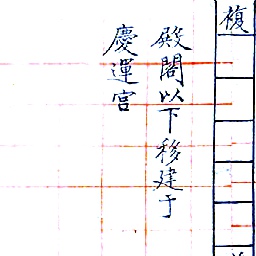 複
殿閣以下移建于
慶運宮